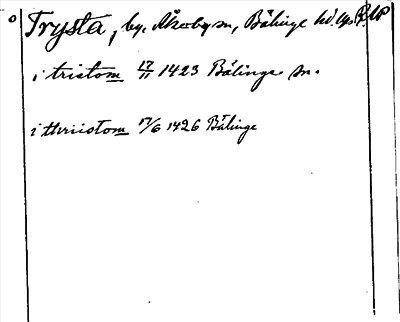 Trysta, by, Åkerby sn, Bälinge hd. Up.
i tristom 17/11 1423 Bälinge sn.
i thriistom 17/6 1426 Bälinge